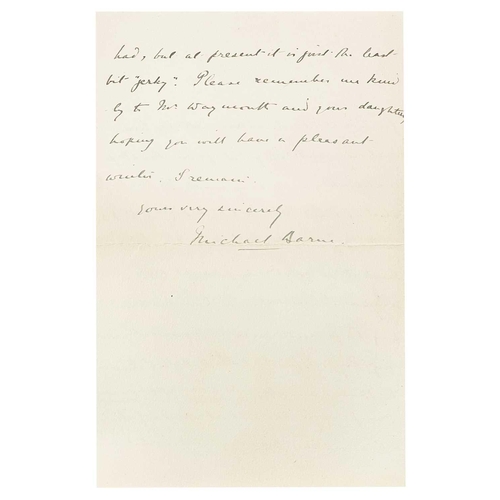 had, but at present it is just the least
bit "jerky". Please remember me kind
ly to Mr Waymouth and your daughters,
hoping you will have a pleasant
winter. I remain.
Yours very sincerely
Michael Barne.